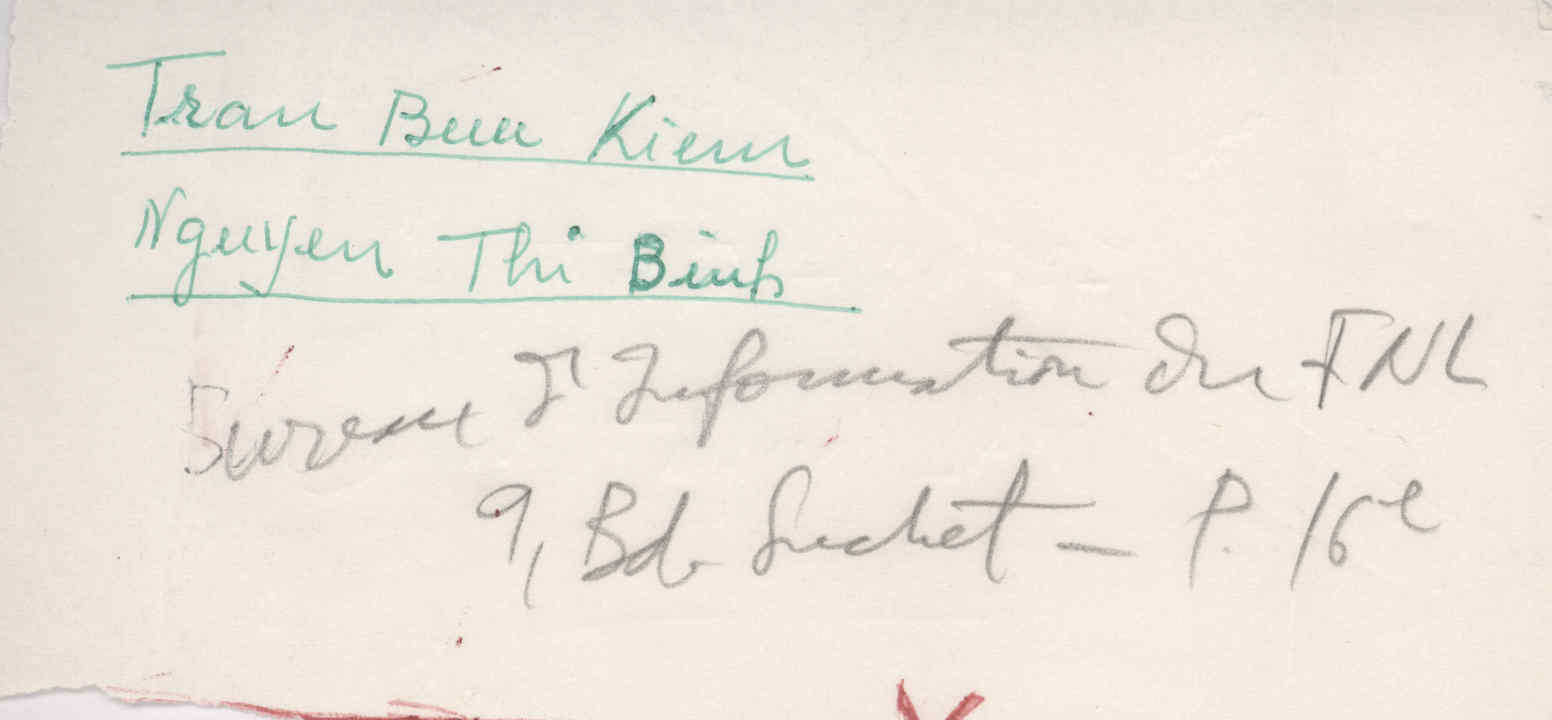 Tran Buu Kiem
Nguyen Thi Binh
Bureau d'Information du FNL
9, Bd. Suchet - P. 16e